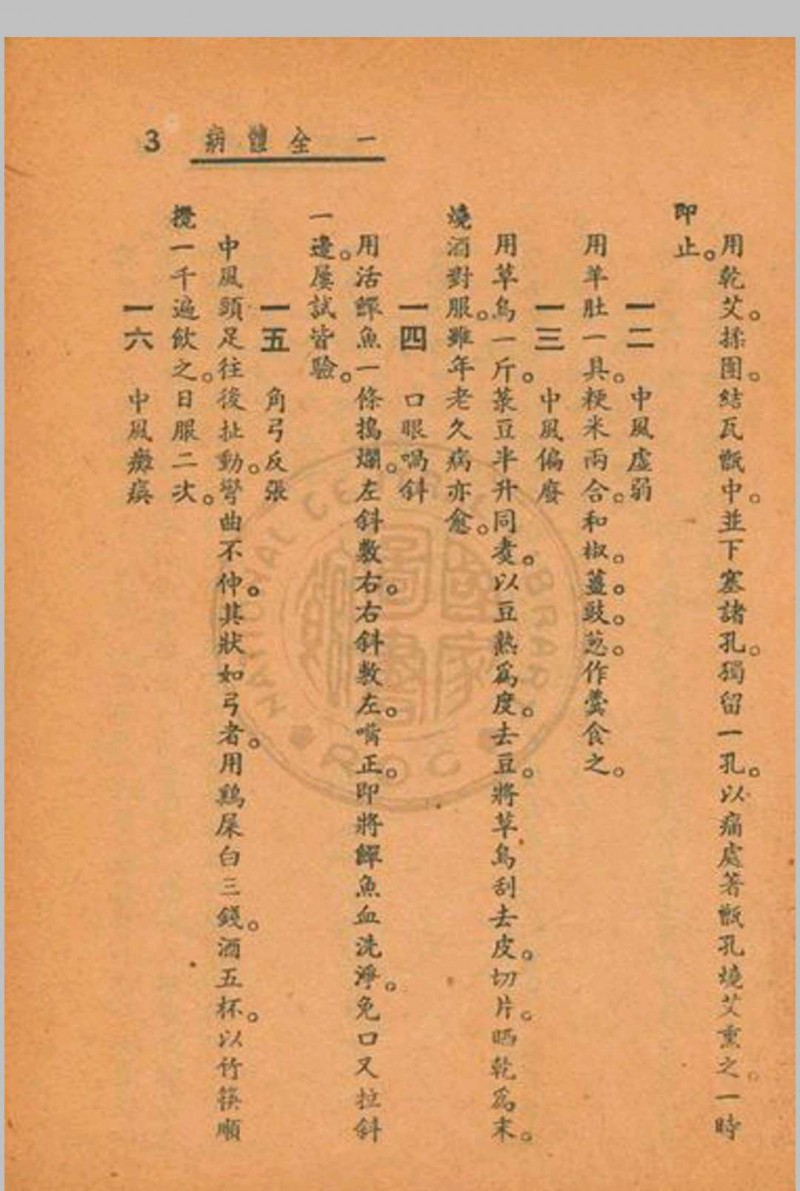 一 全體病 3
用乾艾揉團。結瓦甑中。並下塞諸孔。獨留一孔。以痛處著甑孔燒艾熏之。一時
即止。
一二 中風虛弱
用羊肚一具。粳米兩合。和椒。薑。豉。葱。作羹食之。
一三 中風偏廢
用草烏一斤。菉豆半升同煑。以豆熟爲度。去豆。將草烏刮去皮。切片。晒乾爲末。
燒酒對服。雖年老久病亦愈。
一四 口眼喎斜
用活鱓魚一條搗爛。左斜敷右。右斜敷左。嘴正。即將鱓魚血洗淨。免口又拉斜
一邊。屢試皆驗。
一五 角弓反張
中風頭足往後扯動。彎曲不伸。其狀如弓者。用鷄屎白三錢。酒五杯。以竹筷順
攪一千遍飲之。日服二次。
一六 中風癱瘓
NATIONAL CENTRAL LIBRARY
國家
圖書
ROC